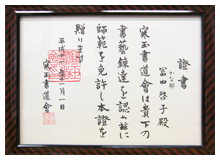 證書
かな部
冨田啓子殿
寒玉書道會は貴下の
書藝錬達を認め茲に
師範を免許し本證を
贈ります
平成十一年一月一日
寒玉書道會